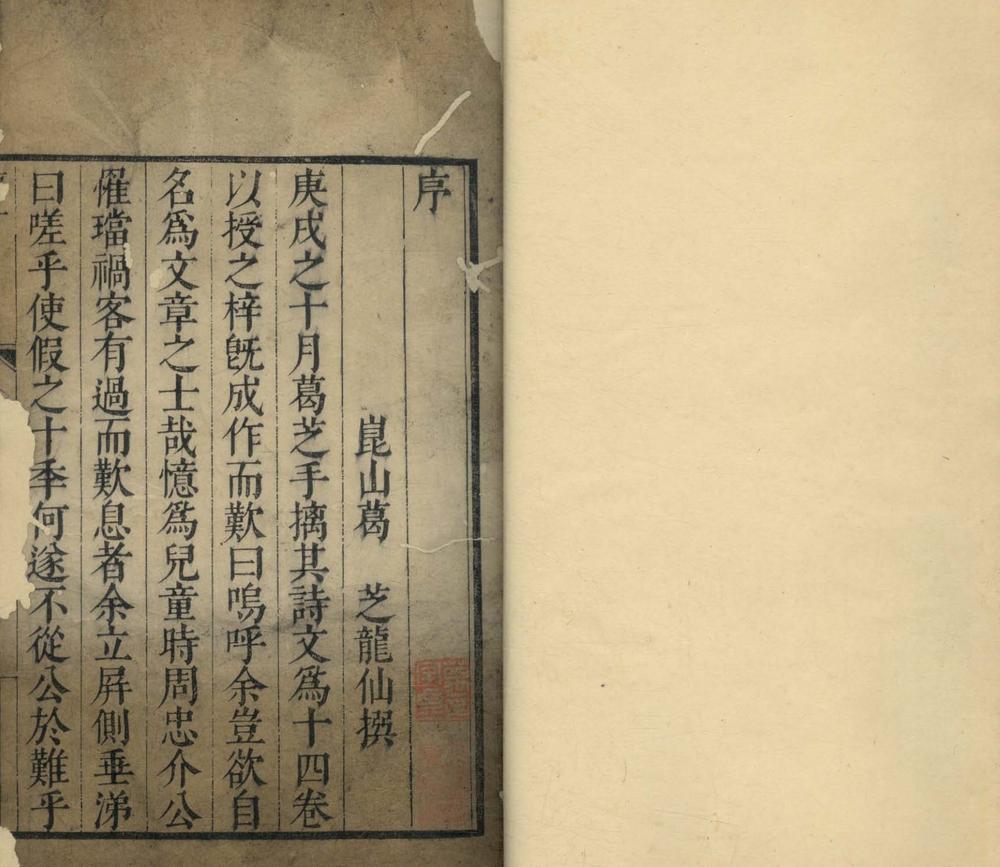 序
崑山葛　芝龍仙撰
庚戌之十月葛芝手摛其詩文爲十四卷
以授之梓旣成作而歎曰嗚呼余豈欲自
名爲文章之士哉憶爲兒童時周忠介公
罹璫禍客有過而歎息者余立屛側垂涕
曰嗟乎使假之十季何遂不從公於難乎